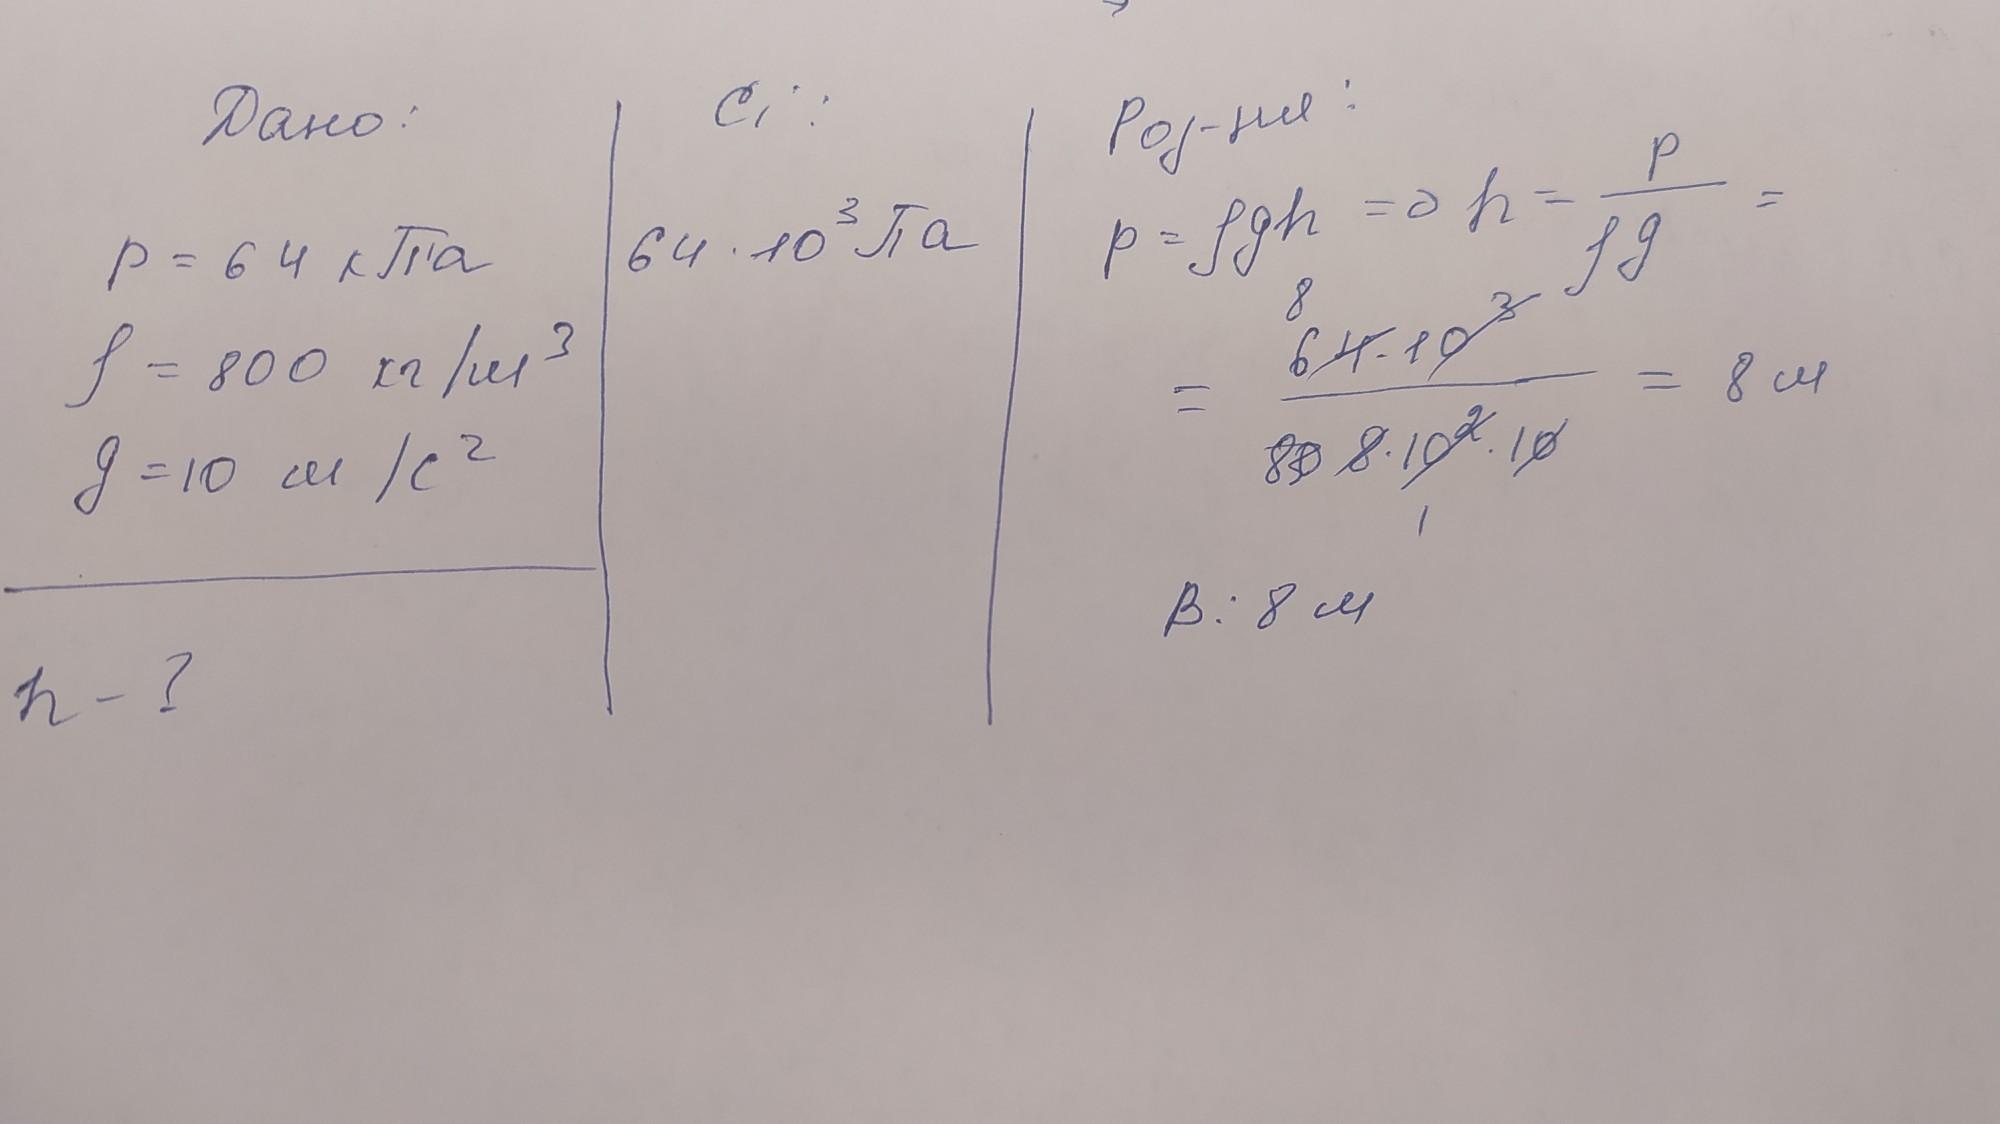 Дано:
p = 64 кПа
ρ = 800 кг/м³
g = 10 м/с²
h - ?
Сі:
64 · 10³ Па
Роз-ня:
p = ρgh => h = p / ρg =
= 64 · 10³ / 8 · 10² · 10 = 8 м
8
1
В: 8 м